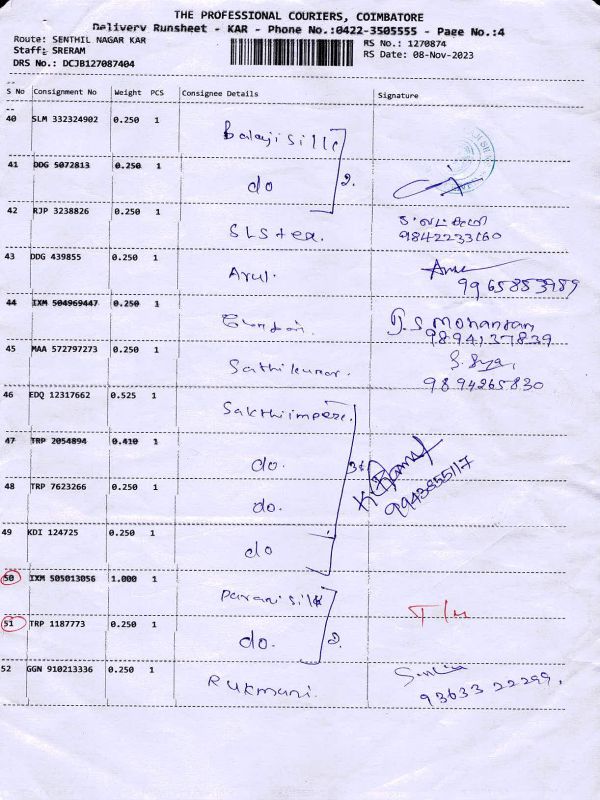 THE PROFESSIONAL COURIERS, COIMBATORE
Delivery Runsheet - KAR - Phone No.:0422-3505555 - Page No.:4
Route: SENTHIL NAGAR KAR
Staff: SRERAM
DRS No.: DCJB127087404
RS No.: 1270874
RS Date: 08-Nov-2023
S No Consignment No Weight PCS Consignee Details Signature
40 SLM 332324902 0.250 1 Balaji silk
41 DDG 5072813 0.250 1 do 2.
42 RJP 3238826 0.250 1 SLS tex.
9842233160
43 DDG 439855 0.250 1 Arul.
9965853989
44 IXM 504969447 0.250 1
T.S Mohanram
9894137839
45 MAA 572797273 0.250 1 Sathikumar.
9894265830
46 EDQ 12317662 0.525 1
47 TRP 2054894 0.410 1 do.
48 TRP 7623266 0.250 1 do.
9943855117
49 KDI 124725 0.250 1 do
50 IXM 505013056 1.000 1 Parani silk
51 TRP 1187773 0.250 1 do. 2.
52 GGN 910213336 0.250 1 Rukmani.
93633 22299.